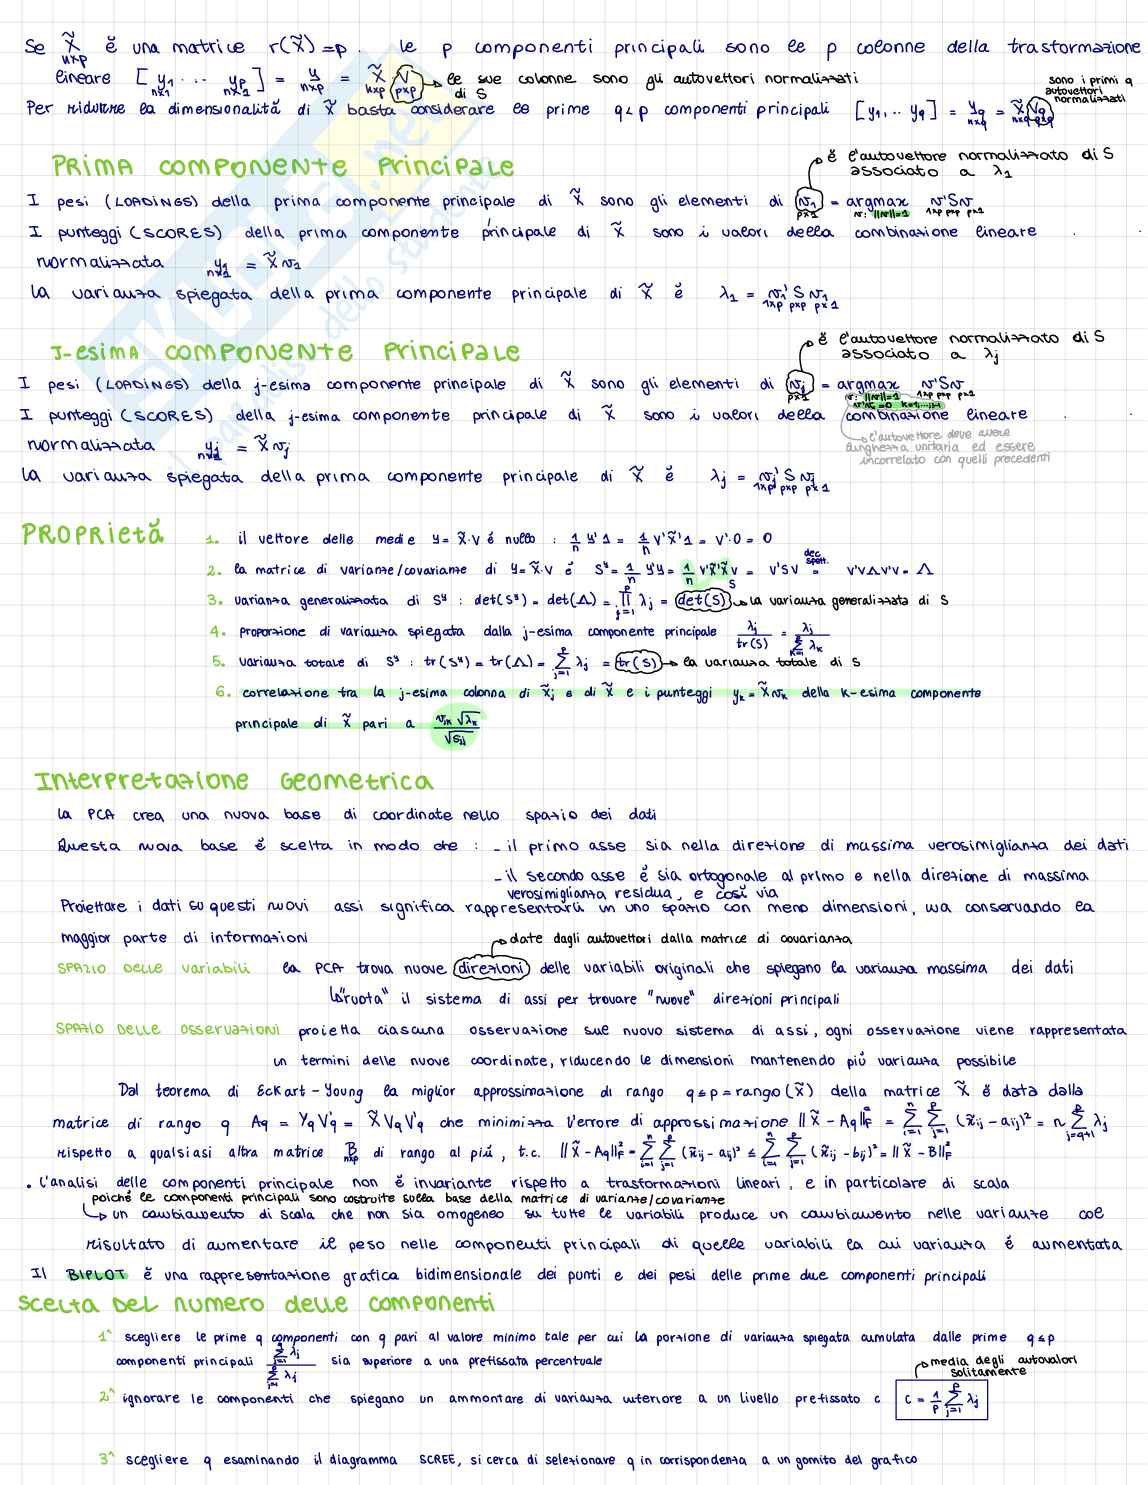 Se X̃ è una matrice r(X̃) = p. le p componenti principali sono le p colonne della trasformazione
n×p
lineare [y₁ ... yp] = y = X̃ V → le sue colonne sono gli autovettori normalizzati di S
n×1 n×1 n×p n×p p×p
sono i primi q autovettori normalizzati
Per ridurre la dimensionalità di X̃ basta considerare le prime q<p componenti principali [y₁,.. yq] = yq = X̃ Vq
n×q n×p p×q
PRIMA COMPONENTE PRINCIPALE
è l'autovettore normalizzato di S
associato a λ₁
I pesi (LOADINGS) della prima componente principale di X̃ sono gli elementi di v₁ = argmax v'Sv
p×1 v: ||v||=1 1×p p×p p×1
I punteggi (SCORES) della prima componente principale di X̃ sono i valori della combinazione lineare
normalizzata y₁ = X̃ v₁
n×1
la varianza spiegata della prima componente principale di X̃ è λ₁ = v₁' S v₁
1×p p×p p×1
J-esima COMPONENTE PRINCIPALE
è l'autovettore normalizzato di S
associato a λj
I pesi (LOADINGS) della j-esima componente principale di X̃ sono gli elementi di vj = argmax v'Sv
p×1 v: ||v||=1 1×p p×p p×1
v'vk=0 k=1,...,j-1
I punteggi (SCORES) della j-esima componente principale di X̃ sono i valori della combinazione lineare
l'autovettore deve avere
lunghezza unitaria ed essere
incorrelato con quelli precedenti
normalizzata yj = X̃ vj
n×1
la varianza spiegata della prima componente principale di X̃ è λj = vj' S vj
1×p p×p p×1
PROPRIETÀ
1. il vettore delle medie y = X̃·V è nullo : 1/n Y'1 = 1/n V'X̃'1 = V'·0 = 0
2. la matrice di varianze/covarianze di Y = X̃·V è Sʸ = 1/n Y'Y = 1/n V'X̃'X̃V = V'SV = V'VΛV'V = Λ
dec. spett.
S
3. varianza generalizzata di Sʸ : det(Sʸ) = det(Λ) = ∏ⱼ₌₁ᵖ λj = det(S) → la varianza generalizzata di S
4. proporzione di varianza spiegata dalla j-esima componente principale λj/tr(S) = λj/∑ₖ₌₁ᵖ λk
5. varianza totale di Sʸ : tr(Sʸ) = tr(Λ) = ∑ⱼ₌₁ᵖ λj = tr(S) → la varianza totale di S
6. correlazione tra la j-esima colonna di x̃j e di X̃ e i punteggi yk = X̃vk della k-esima componente
principale di X̃ pari a vjk √λk / √sjj
Interpretazione Geometrica
la PCA crea una nuova base di coordinate nello spazio dei dati
Questa nuova base è scelta in modo che : - il primo asse sia nella direzione di massima verosimiglianza dei dati
- il secondo asse è sia ortogonale al primo e nella direzione di massima
verosimiglianza residua, e così via
Proiettare i dati su questi nuovi assi significa rappresentarli in uno spazio con meno dimensioni, ma conservando la
maggior parte di informazioni
date dagli autovettori dalla matrice di covarianza
SPAZIO DELLE variabili la PCA trova nuove direzioni delle variabili originali che spiegano la varianza massima dei dati
↳ "ruota" il sistema di assi per trovare "nuove" direzioni principali
SPAZIO DELLE OSSERVAZIONI proietta ciascuna osservazione sul nuovo sistema di assi, ogni osservazione viene rappresentata
in termini delle nuove coordinate, riducendo le dimensioni mantenendo più varianza possibile
Dal teorema di Eckart-Young la miglior approssimazione di rango q≤p = rango(X̃) della matrice X̃ è data dalla
matrice di rango q Aq = YqV'q = X̃VqV'q che minimizza l'errore di approssimazione ||X̃ - Aq||²F = ∑ᵢ₌₁ⁿ ∑ⱼ₌₁ᵖ (x̃ij - aij)² = n ∑ⱼ₌q₊₁ᵖ λj
rispetto a qualsiasi altra matrice B di rango al più, t.c. ||X̃ - Aq||²F = ∑ᵢ₌₁ⁿ ∑ⱼ₌₁ᵖ (x̃ij - aij)² ≤ ∑ᵢ₌₁ⁿ ∑ⱼ₌₁ᵖ (x̃ij - bij)² = ||X̃ - B||²F
n×p
. L'analisi delle componenti principale non è invariante rispetto a trasformazioni lineari, e in particolare di scala
poiché le componenti principali sono costruite sulla base della matrice di varianze/covarianze
↳ un cambiamento di scala che non sia omogeneo su tutte le variabili produce un cambiamento nelle varianze col
risultato di aumentare il peso nelle componenti principali di quelle variabili la cui varianza è aumentata
Il BIPLOT è una rappresentazione grafica bidimensionale dei punti e dei pesi delle prime due componenti principali
Scelta DEL numero delle componenti
1^ scegliere le prime q componenti con q pari al valore minimo tale per cui la porzione di varianza spiegata cumulata dalle prime q≤p
componenti principali ∑ⱼ₌₁q λj / ∑ⱼ₌₁ᵖ λj sia superiore a una prefissata percentuale
media degli autovalori
solitamente
2^ ignorare le componenti che spiegano un ammontare di varianza inferiore a un livello prefissato c c = 1/p ∑ⱼ₌₁ᵖ λj
3^ scegliere q esaminando il diagramma SCREE, si cerca di selezionare q in corrispondenza a un gomito del grafico